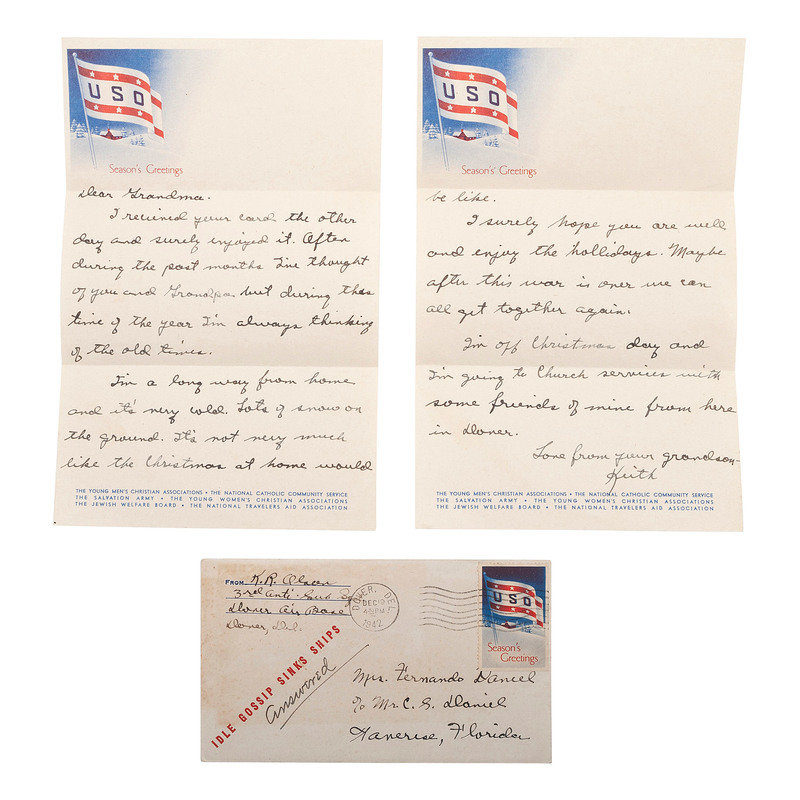 USO
Season's Greetings
Dear Grandma.
I received your card the other
day and surely enjoyed it. Often
during the past months I've thought
of you and Grandpa but during this
time of the year I'm always thinking
of the old times.
I'm a long way from home
and it's very cold. Lots of snow on
the ground. It's not very much
like the Christmas at home would
THE YOUNG MEN'S CHRISTIAN ASSOCIATIONS • THE NATIONAL CATHOLIC COMMUNITY SERVICE
THE SALVATION ARMY • THE YOUNG WOMEN'S CHRISTIAN ASSOCIATIONS
THE JEWISH WELFARE BOARD • THE NATIONAL TRAVELERS AID ASSOCIATION
USO
Season's Greetings
be like.
I surely hope you are well
and enjoy the hollidays. Maybe
after this war is over we can
all get together again.
I'm off Christmas day and
I'm going to Church services with
some friends of mine from here
in Dover.
Love from your grandson
Keith
THE YOUNG MEN'S CHRISTIAN ASSOCIATIONS • THE NATIONAL CATHOLIC COMMUNITY SERVICE
THE SALVATION ARMY • THE YOUNG WOMEN'S CHRISTIAN ASSOCIATIONS
THE JEWISH WELFARE BOARD • THE NATIONAL TRAVELERS AID ASSOCIATION
FROM K. R. Olsen
3rd Anti-Sub
Dover Air Base
Dover, Del.
DOVER, DEL.
DEC 19
PM
1942
USO
Season's
Greetings
IDLE GOSSIP SINKS SHIPS
Answered
Mrs. Fernando Daniel
℅ Mr. C. G. Daniel
Florida